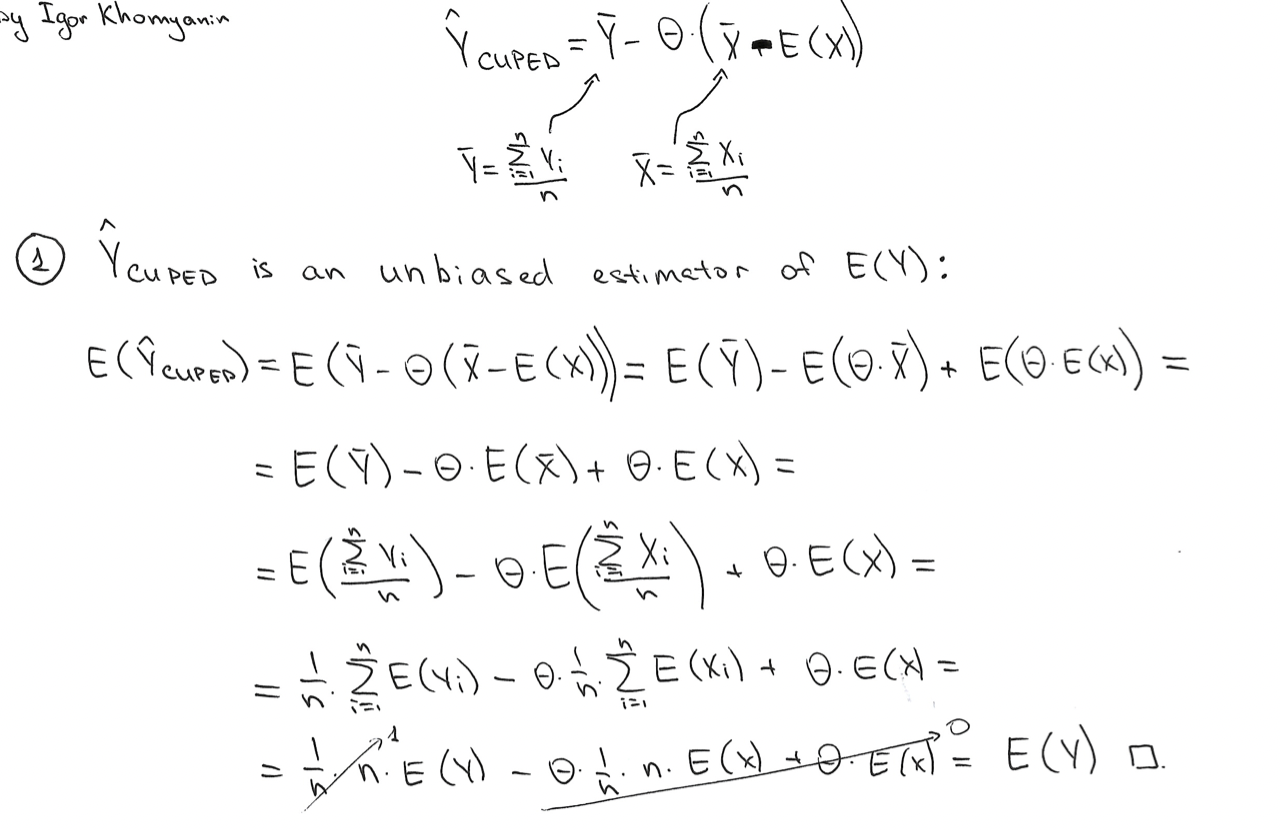 by Igor Khomyanin
Ŷ_CUPED = Ȳ - Θ·(X̄ - E(X))
Ȳ = Σ_{i=1}^{n} Y_i / n    X̄ = Σ_{i=1}^{n} X_i / n
① Ŷ_CUPED is an unbiased estimator of E(Y):
E(Ŷ_CUPED) = E(Ȳ - Θ(X̄ - E(X))) = E(Ȳ) - E(Θ·X̄) + E(Θ·E(X)) =
= E(Ȳ) - Θ·E(X̄) + Θ·E(X) =
= E(Σ_{i=1}^{n} Y_i / n) - Θ·E(Σ_{i=1}^{n} X_i / n) + Θ·E(X) =
= 1/n · Σ_{i=1}^{n} E(Y_i) - Θ·1/n·Σ_{i=1}^{n} E(X_i) + Θ·E(X) =
= 1/n · n · E(Y) - Θ·1/n·n·E(X) + Θ·E(X) = E(Y) □.
1
0